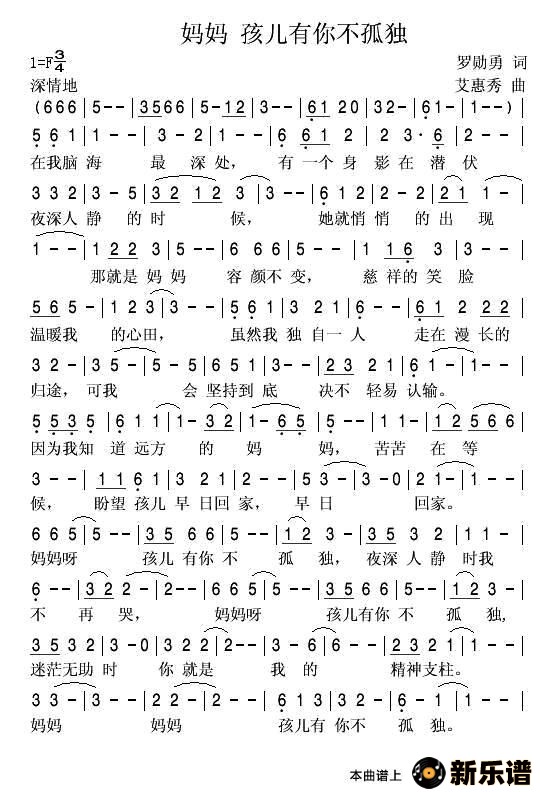 妈妈 孩儿有你不孤独
1=F 3/4
罗勋勇 词
深情地
艾惠秀 曲
(666 | 5-- | 3566 | 5-12 | 3-- | 6120 | 32- | 61- | 1--) |
561 | 1-- | 3-2 | 3-- | 6 61 | 2-- | 23·6 | 2-- |
在我脑 海 最 深 处， 有 一个 身 影 在 潜 伏
332 | 3-5 | 32 12 | 3-- | 3-- | 612 | 2-2 | 21 | 1- |
夜深人 静 的 时 候， 她就悄 悄 的 出 现
1-- | 122 | 3-5 | 6-- | 5-- | 3-- | 116 | 3-3 | 3-- |
那就是 妈 妈 容 颜 不 变， 慈 祥 的 笑 脸
565 | 5-- | 123 | 3-- | 561 | 3-2 | 3-- | 612 22 |
温暖我 的心田， 虽然我 独 自一 人 走在 漫 长的
322 | 1-- | 5-5 | 651 | 3-- | 23 21 | 61- | 1-- |
归途， 可我 会 坚持到 底 决不 轻易 认输。
5535 | 611 | 1-32 | 1-65 | 5-- | 1-1 | 12566 |
因为我知 道 远方 的 妈 妈， 苦苦 在 等
3-- | 1161 | 322 | 1-2 | 53- | 3-0 | 21- | 1-- |
候， 盼望 孩儿 早 日回 家， 早 日 回家。
665 | 5-- | 35 66 | 5-- | 5-- | 12 3 | 32 2 | 11- |
妈妈呀 孩儿 有你 不 孤 独， 夜深 人 静 时我
6-- | 32 2- | 2-- | 665 | 5-- | 3566 | 5-- | 123- |
不 再 哭， 妈妈呀 孩儿有你 不 孤 独，
3532 | 3-0 | 332 | 2-- | 6-3 | 6-6 | 2321 | 1-- |
迷茫无助 时 你 就 是 我 的 精神支柱。
2-2 | 2-- | 2-2 | 2-- | 613 | 332 | 2-- | 1-- | 1-- |
妈妈 妈妈 孩儿有 你不 孤 独。
本曲谱上 新乐谱